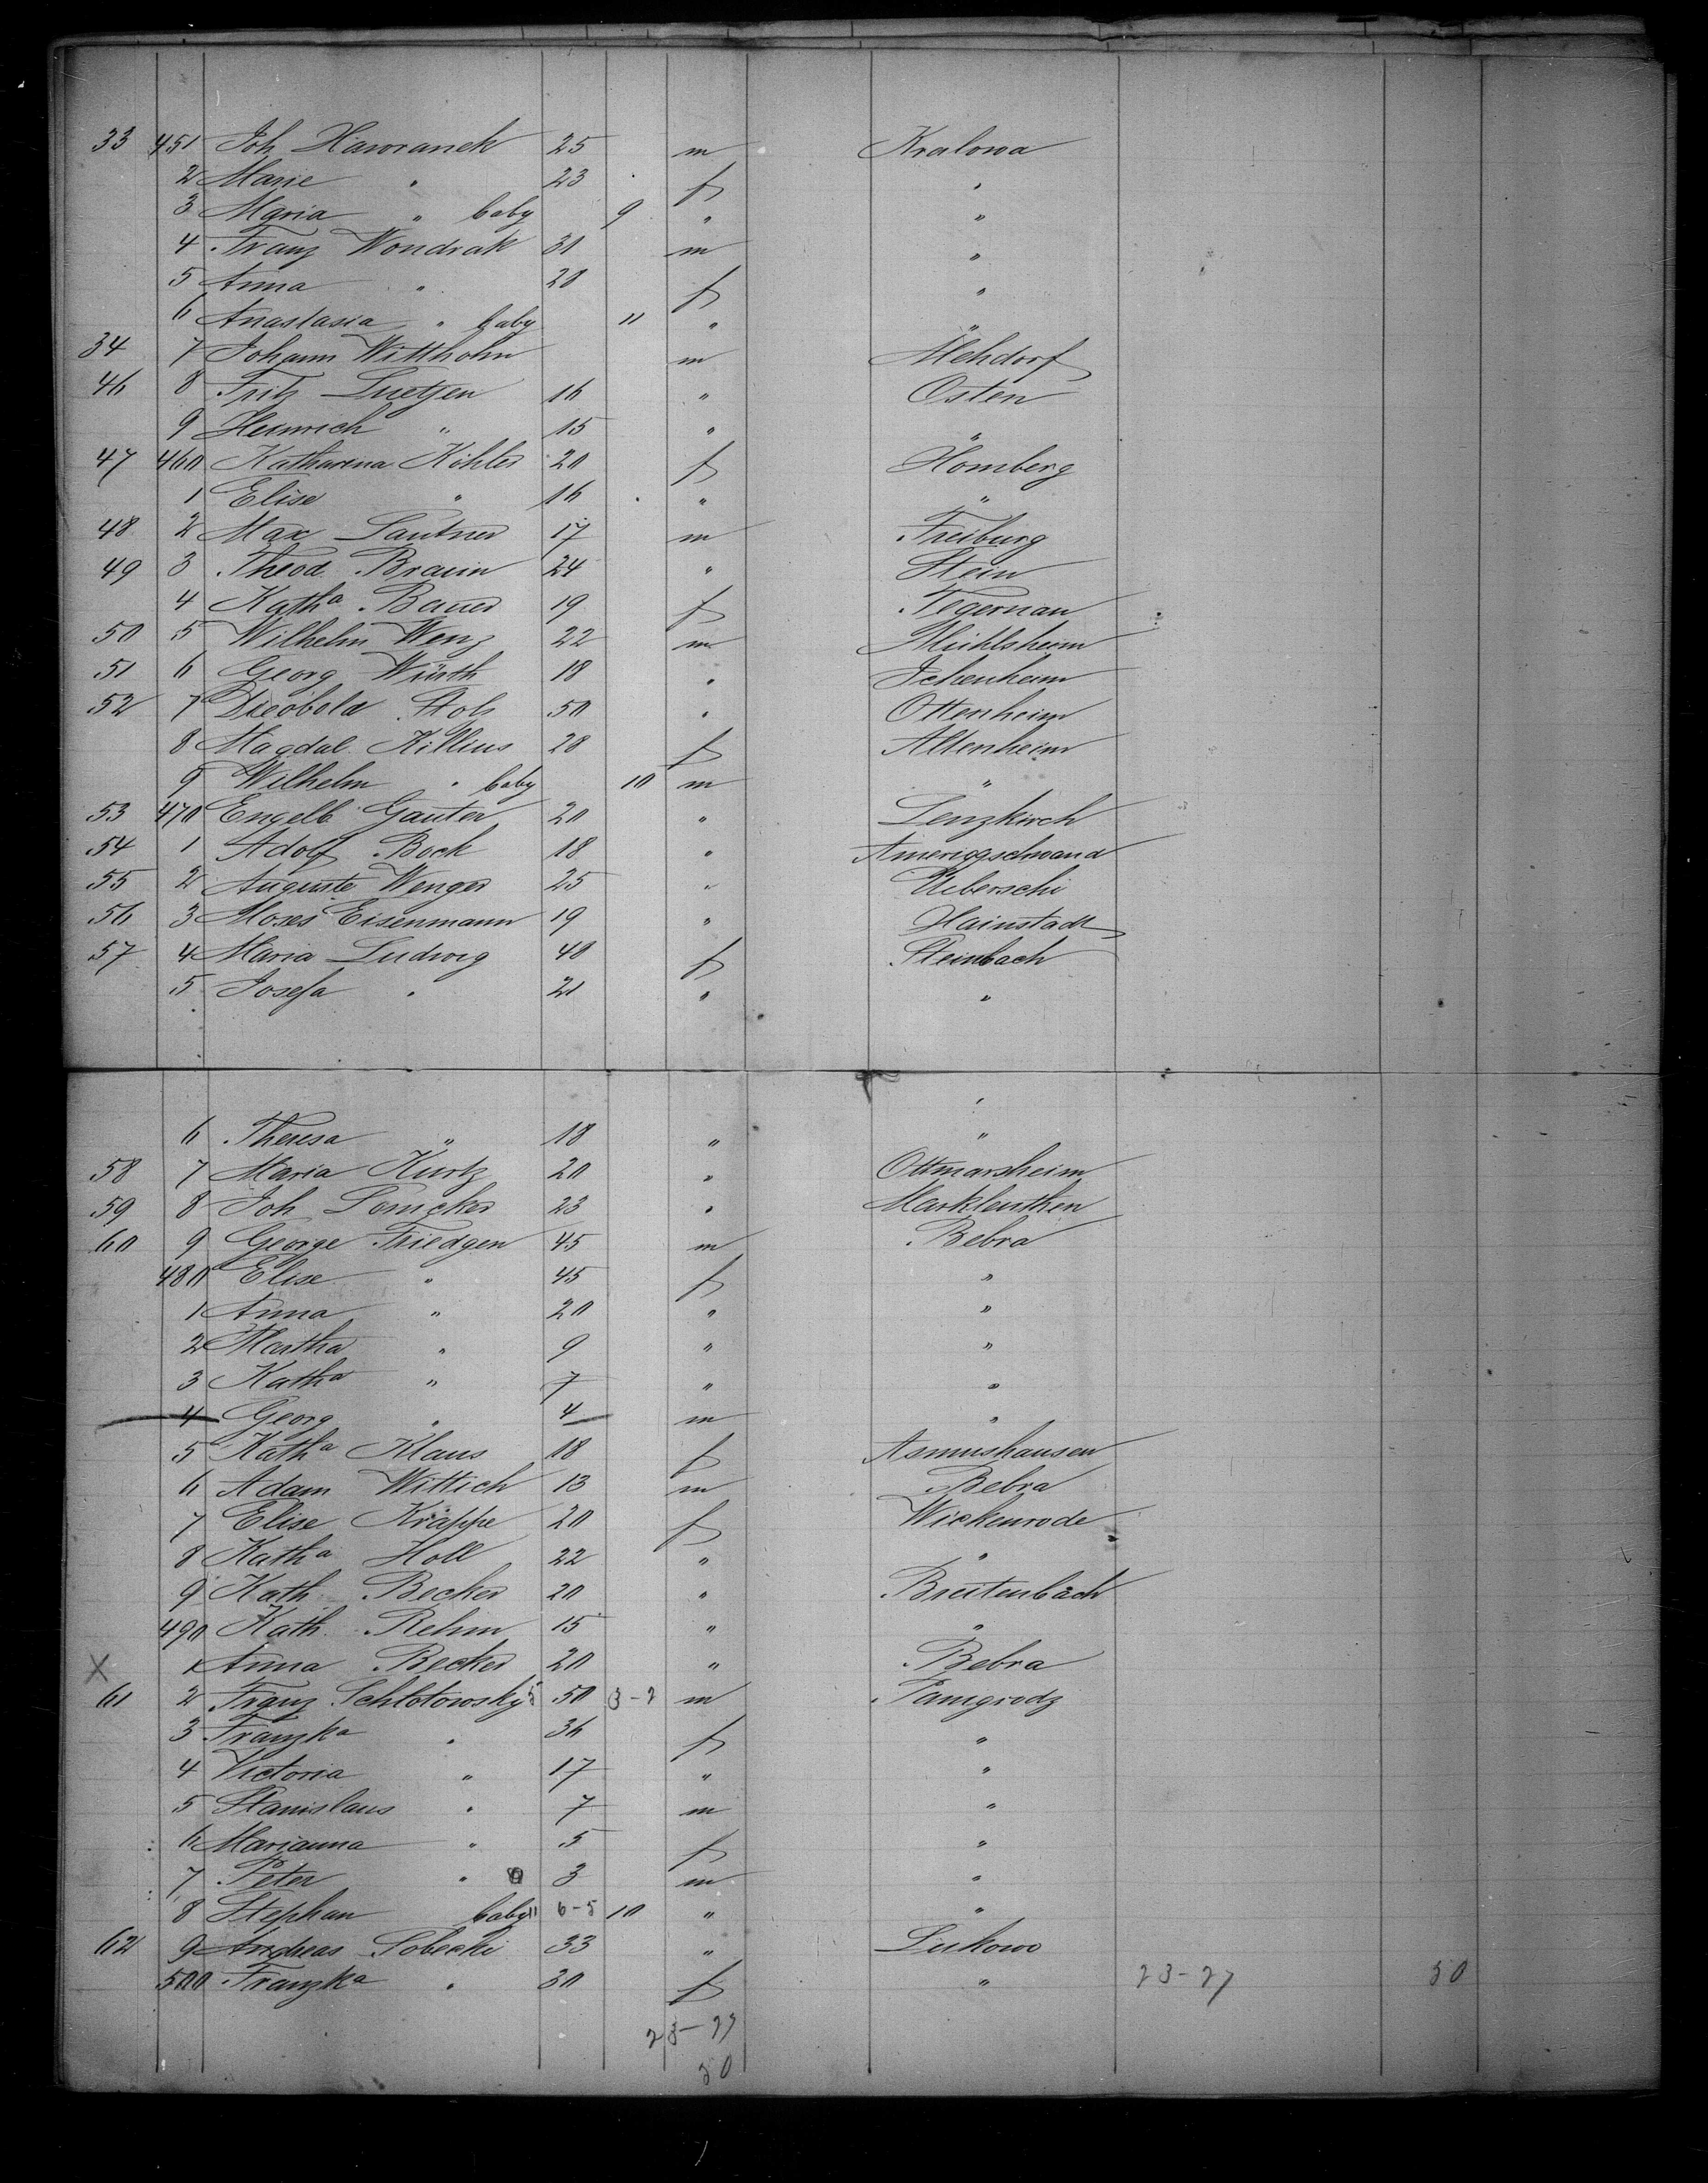 33 451 Joh Hawranek 25 m Kralowa
2 Marie " 23 f "
3 Maria " baby 9 " "
4 Franz Wondrak 31 m "
5 Anna " 20 f "
6 Anastasia " baby 11 " "
34 7 Johann Witthohn m Mehdorf
46 8 Fritz Luetjen 16 " Osten
9 Heinrich " 15 " "
47 460 Katharina Köhler 20 f Homberg
1 Elise " 16 " "
48 2 Max Lautner 17 m Freiburg
49 3 Theod. Braun 24 " Stein
4 Katha Bauer 19 f Tegernau
50 5 Wilhelm Wenz 22 m Mühlsheim
51 6 Georg Würth 18 " Ichenheim
52 7 Diebold Stolz 50 " Ottenheim
8 Magdal. Killius 28 f Altenheim
9 Wilhelm " baby 10 m "
53 470 Engelb. Ganter 20 " Lenzkirch
54 1 Adolf Bock 18 " Ameriggschwand
55 2 Auguste Wenger 25 " Ueberschi
56 3 Moses Eisenmann 19 " Hainstadt
57 4 Maria Ludwig 40 f Steinbach
5 Josefa " 21 " "
6 Theresa " 18 " "
58 7 Maria Kurtz 20 " Ottmarsheim
59 8 Joh 23 " Markleuthen
60 9 George Friedgen 45 m Bebra
480 Elise " 45 f "
1 Anna " 20 " "
2 Martha " 9 " "
3 Katha " 7 " "
4 Georg " 4 m "
5 Katha Klaus 18 f Asmushausen
6 Adam Wittich 13 m Bebra
7 Elise Kräppe 20 f Wickenrode
8 Katha Holl 22 " "
9 Kath. Becker 20 " Breitenbach
490 Kath. Rehm 15 " "
X 1 Anna Becker 20 " Bebra
61 2 Franz Schlotowsky 5 50 3-2 m Pamgrodz
3 Franzka " 36 f "
4 Victoria " 17 " "
5 Stanislaus " 7 m "
6 Marianna " 5 f "
7 Peter " 3 m "
8 Stephan baby 11 6-5 10 " "
62 9 Andreas Sobecki 33 " Lukowo
500 Franzka " 30 f " 23-27 50
23-27
50